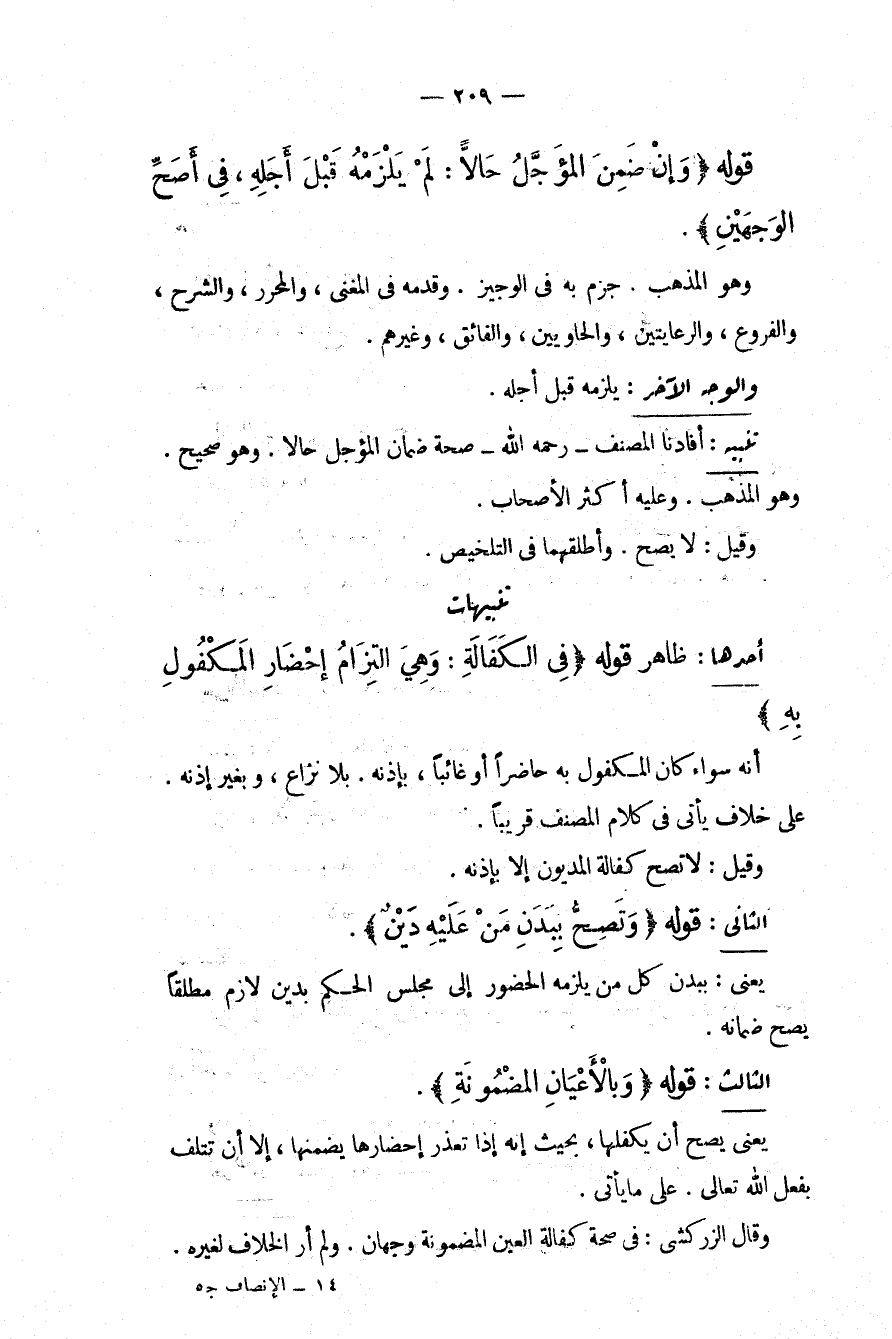 — ٢٠٩ —
قوله ﴿ وَإِنْ ضَمِنَ المؤَجَّلُ حَالاًّ : لَمْ يَلْزَمْهُ قَبْلَ أَجَلِهِ ، فِى أَصَحِّ
الوَجهَيْنِ ﴾ .
وهو المذهب . جزم به فى الوجيز . وقدمه فى المغنى ، والمحرر ، والشرح ،
والفروع ، والرعايتين ، والحاويين ، والفائق ، وغيرهم .
والوجه الآخر : يلزمه قبل أجله .
تنبيه : أفادنا المصنف ــ رحمه الله ــ صحة ضمان المؤجل حالا . وهو صحيح .
وهو المذهب . وعليه أكثر الأصحاب .
وقيل : لا يصح . وأطلقهما فى التلخيص .
تنبيهات
أحدها : ظاهر قوله ﴿ فِى الـكَفَالَةِ : وَهِىَ التِزَامُ إحْضَارِ المَـكْفُولِ
بِهِ ﴾
أنه سواء كان المـكفول به حاضراً أو غائباً ، بإذنه . بلا نزاع ، وبغير إذنه .
على خلاف يأتى فى كلام المصنف قريباً .
وقيل : لا تصح كفالة المديون إلا بإذنه .
الثانى : قوله ﴿ وَتَصِحُّ بِبَدَنِ مَنْ عَلَيْهِ دَيْنٌ ﴾ .
يعنى : ببدن كل من يلزمه الحضور إلى مجلس الحـكم بدين لازم مطلقاً
يصح ضمانه .
الثالث : قوله ﴿ وَبِالْأَعْيَانِ المضْمُونَةِ ﴾ .
يعنى يصح أن يكفلها ، بحيث إنه إذا تعذر إحضارها يضمنها ، إلا أن تتلف
بفعل الله تعالى . على ما يأتى .
وقال الزركشى : فى صحة كفالة العين المضمونة وجهان . ولم أر الخلاف لغيره .
١٤ ــ الإنصاف ج٥